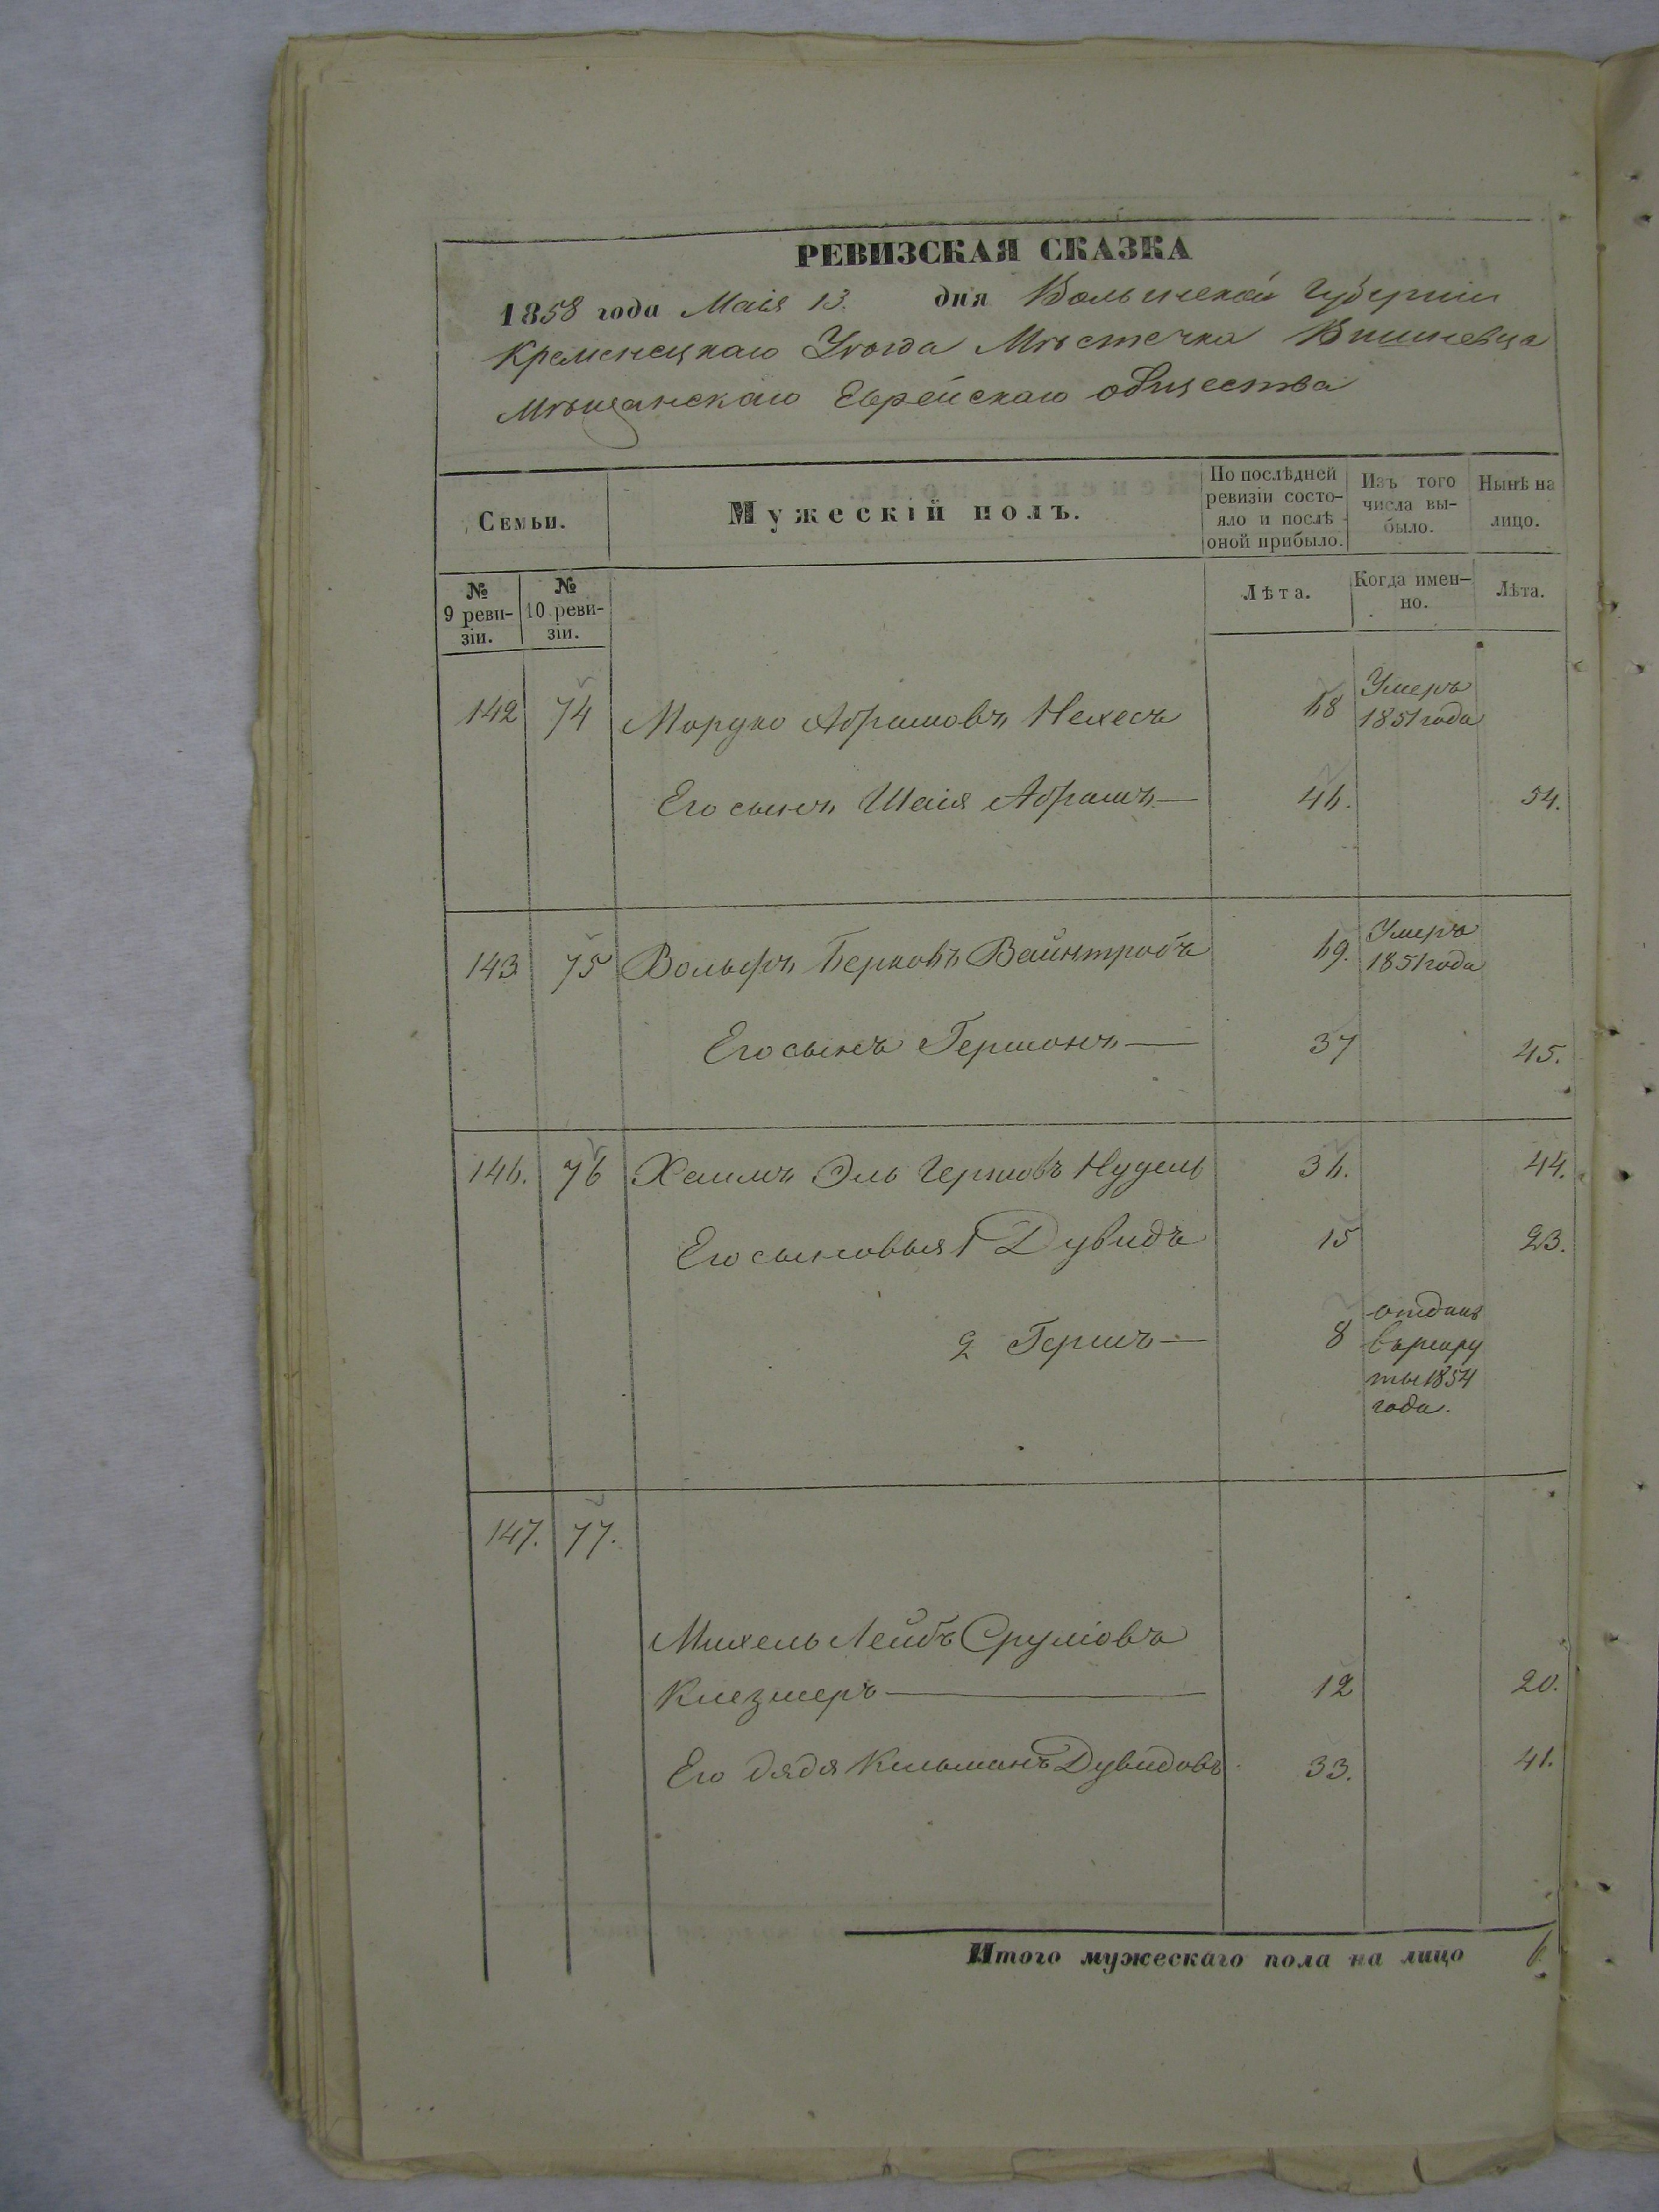 РЕВИЗСКАЯ СКАЗКА
1858 года Маія 13 дня Волынской Губерніи
Кременецкаго Уѣзда Мѣстечка Вишневца
Мѣщанскаго Еврейскаго общества
Семьи.
Мужескій полъ.
По послѣдней
ревизіи состо-
яло и послѣ
оной прибыло.
Изъ того
числа вы-
было.
Нынѣ на
лицо.
№
9 реви-
зіи.
№
10 реви-
зіи.
Лѣта.
Когда имен-
но.
Лѣта.
142 74 Мордко Абрамовъ Нехесъ 68 Умеръ
1851 года
Его сынъ Шаія Абрамъ — 46. 54.
143 75 Вольфъ Берковъ Вайнтробъ 69. Умеръ
1851 года
Его сынъ Гершонъ — 37 45.
146. 76 Хаимъ Эль Гершовъ Нудель 36. 44.
Его сыновья 1 Дувидъ 15 23.
2 Гершъ — 8 отданъ
въ рекру
ты 1854
года.
147. 77.
Михель Лейбъ Сруліовъ
Клезмеръ — 12 20.
Его дядя Кельманъ Дувидовъ 33. 41.
Итого мужескаго пола на лицо 6.